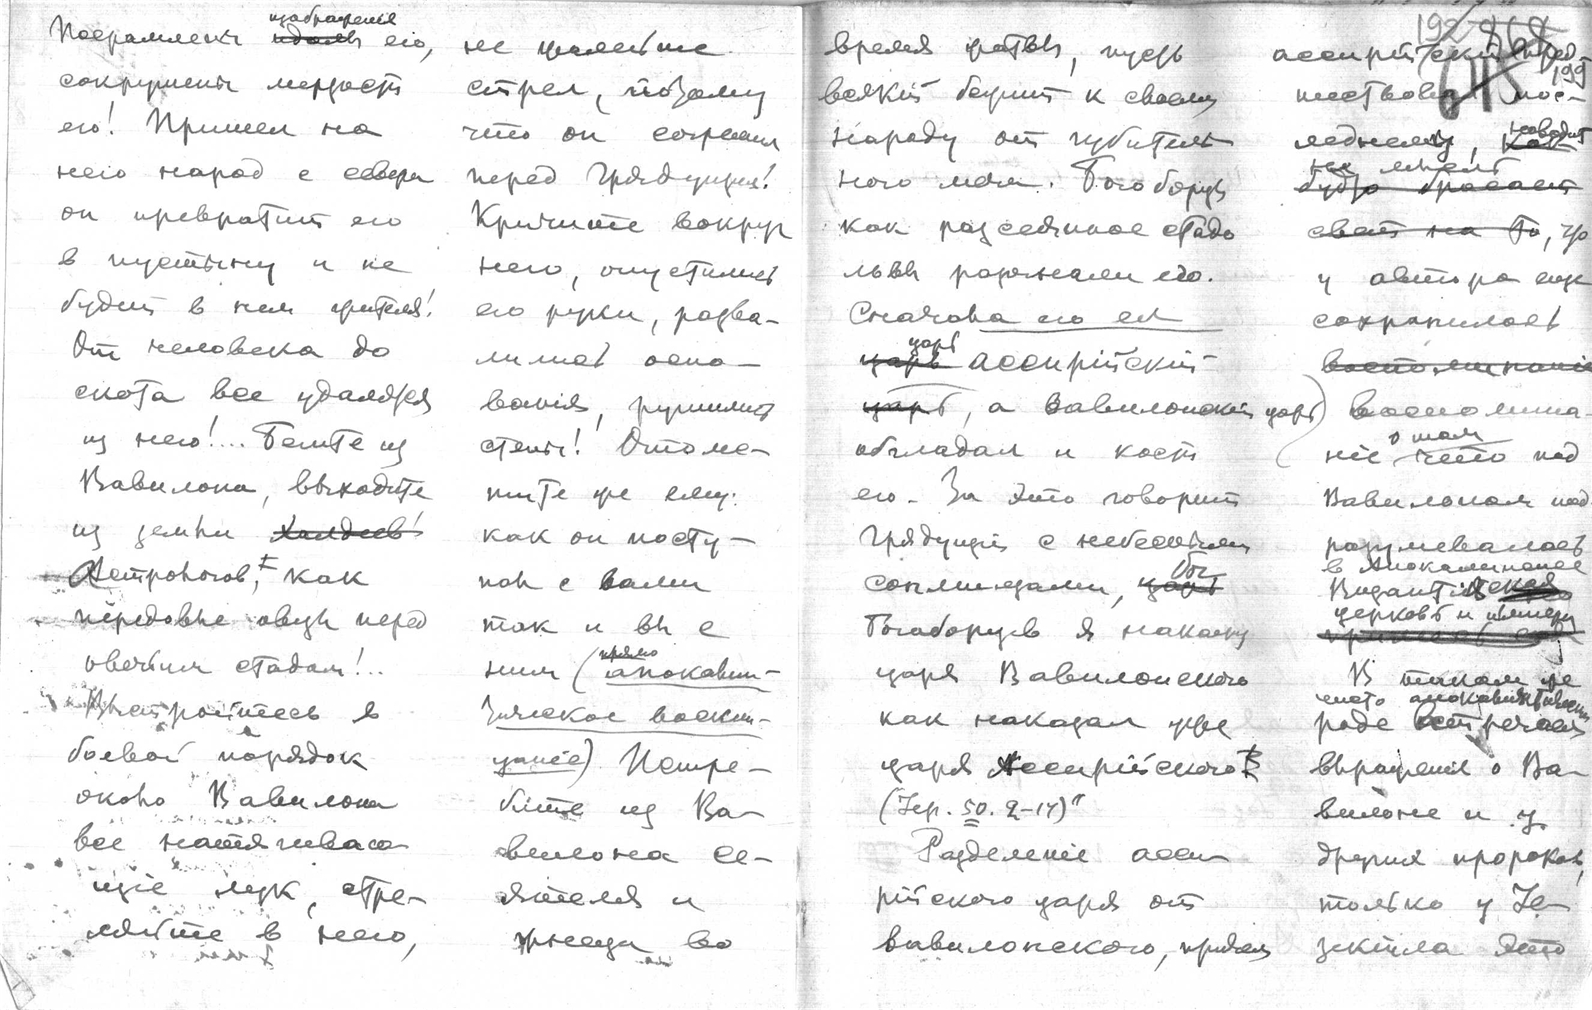 Посрамлены изображенія его,
сокрушены мерзости
его! Пришел на
него народ с севера
он превратит его
в пустыню и не
будет в нем жителя!
От человека до
скота все удалятся
из него!... Бегите из
Вавилона, выходите
из земли Халдеев
Астрологов, как
передовые овцы перед
овечьим стадом!..
Выстройтесь в
боевой порядок
около Вавилона
все натягиваю-
щіе лук, стре-
ляйте в него,
не жалейте
стрел, потому
что он согрешил
перед Грядущим!
Кричите вокруг
него, опустились
его руки, разва-
лились осно-
ванія, рушились
стены! Отомс-
тите же ему:
как он посту-
пал с вами
так и вы с
ним (прямо апокалип-
тическое воскли-
цаніе) Истре-
бите из Ва-
вилона се-
ятеля и
жнеца во
время жатвы, пусть
всякій бежит к своему
народу от губитель-
ного меча. Богоборец
как разсеянное стадо
львы разогнали его.
Сначала его ел
царь ассирійскій
царь, а Вавилонскій царь
обгладал и кости
его. За это говорит
Грядущій с небесными
сопутниками, Бог
Богоборцев я накажу
царя Вавилонского
как наказал уже
царя Ассирійского
(Іер. 50. 2–17)"
Разделеніе асси-
рійского царя от
вавилонского, придая
192
199
ассирійскій пред-
шествовал пос-
леднему, наводит
на мысль
будто бросает
свет на то, что
у автора еще
сохранилось
воспоминаніе
воспомина-
ніе о том что под
Вавилоном под-
разумевалась
в Апокалипсисе
Византійская
церковь и
В таком же
чисто апокалиптическом
роде встречаем
выраженія о Ва-
вилоне и у
других пророков,
только у Іе-
зекіила это